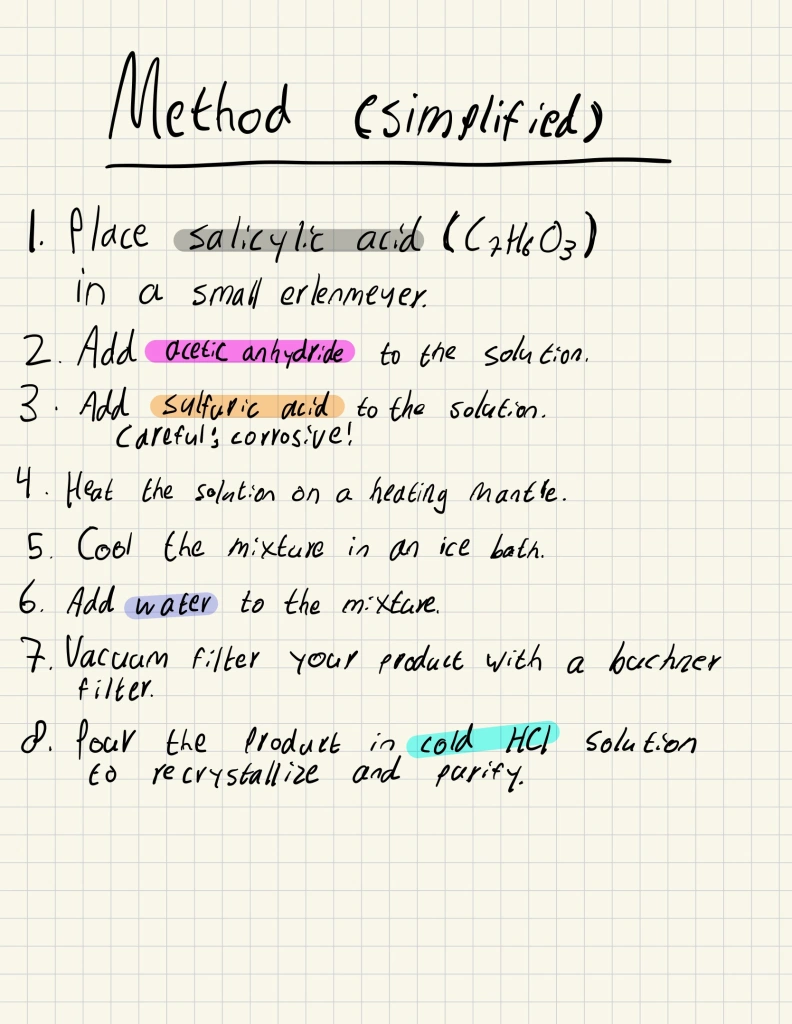 Method (simplified)
1. Place salicylic acid (C₇H₆O₃)
in a small erlenmeyer.
2. Add acetic anhydride to the solution.
3. Add sulfuric acid to the solution.
Careful; corrosive!
4. Heat the solution on a heating mantle.
5. Cool the mixture in an ice bath.
6. Add water to the mixture.
7. Vacuum filter your product with a buchner
filter.
8. Pour the product in cold HCl solution
to recrystallize and purify.